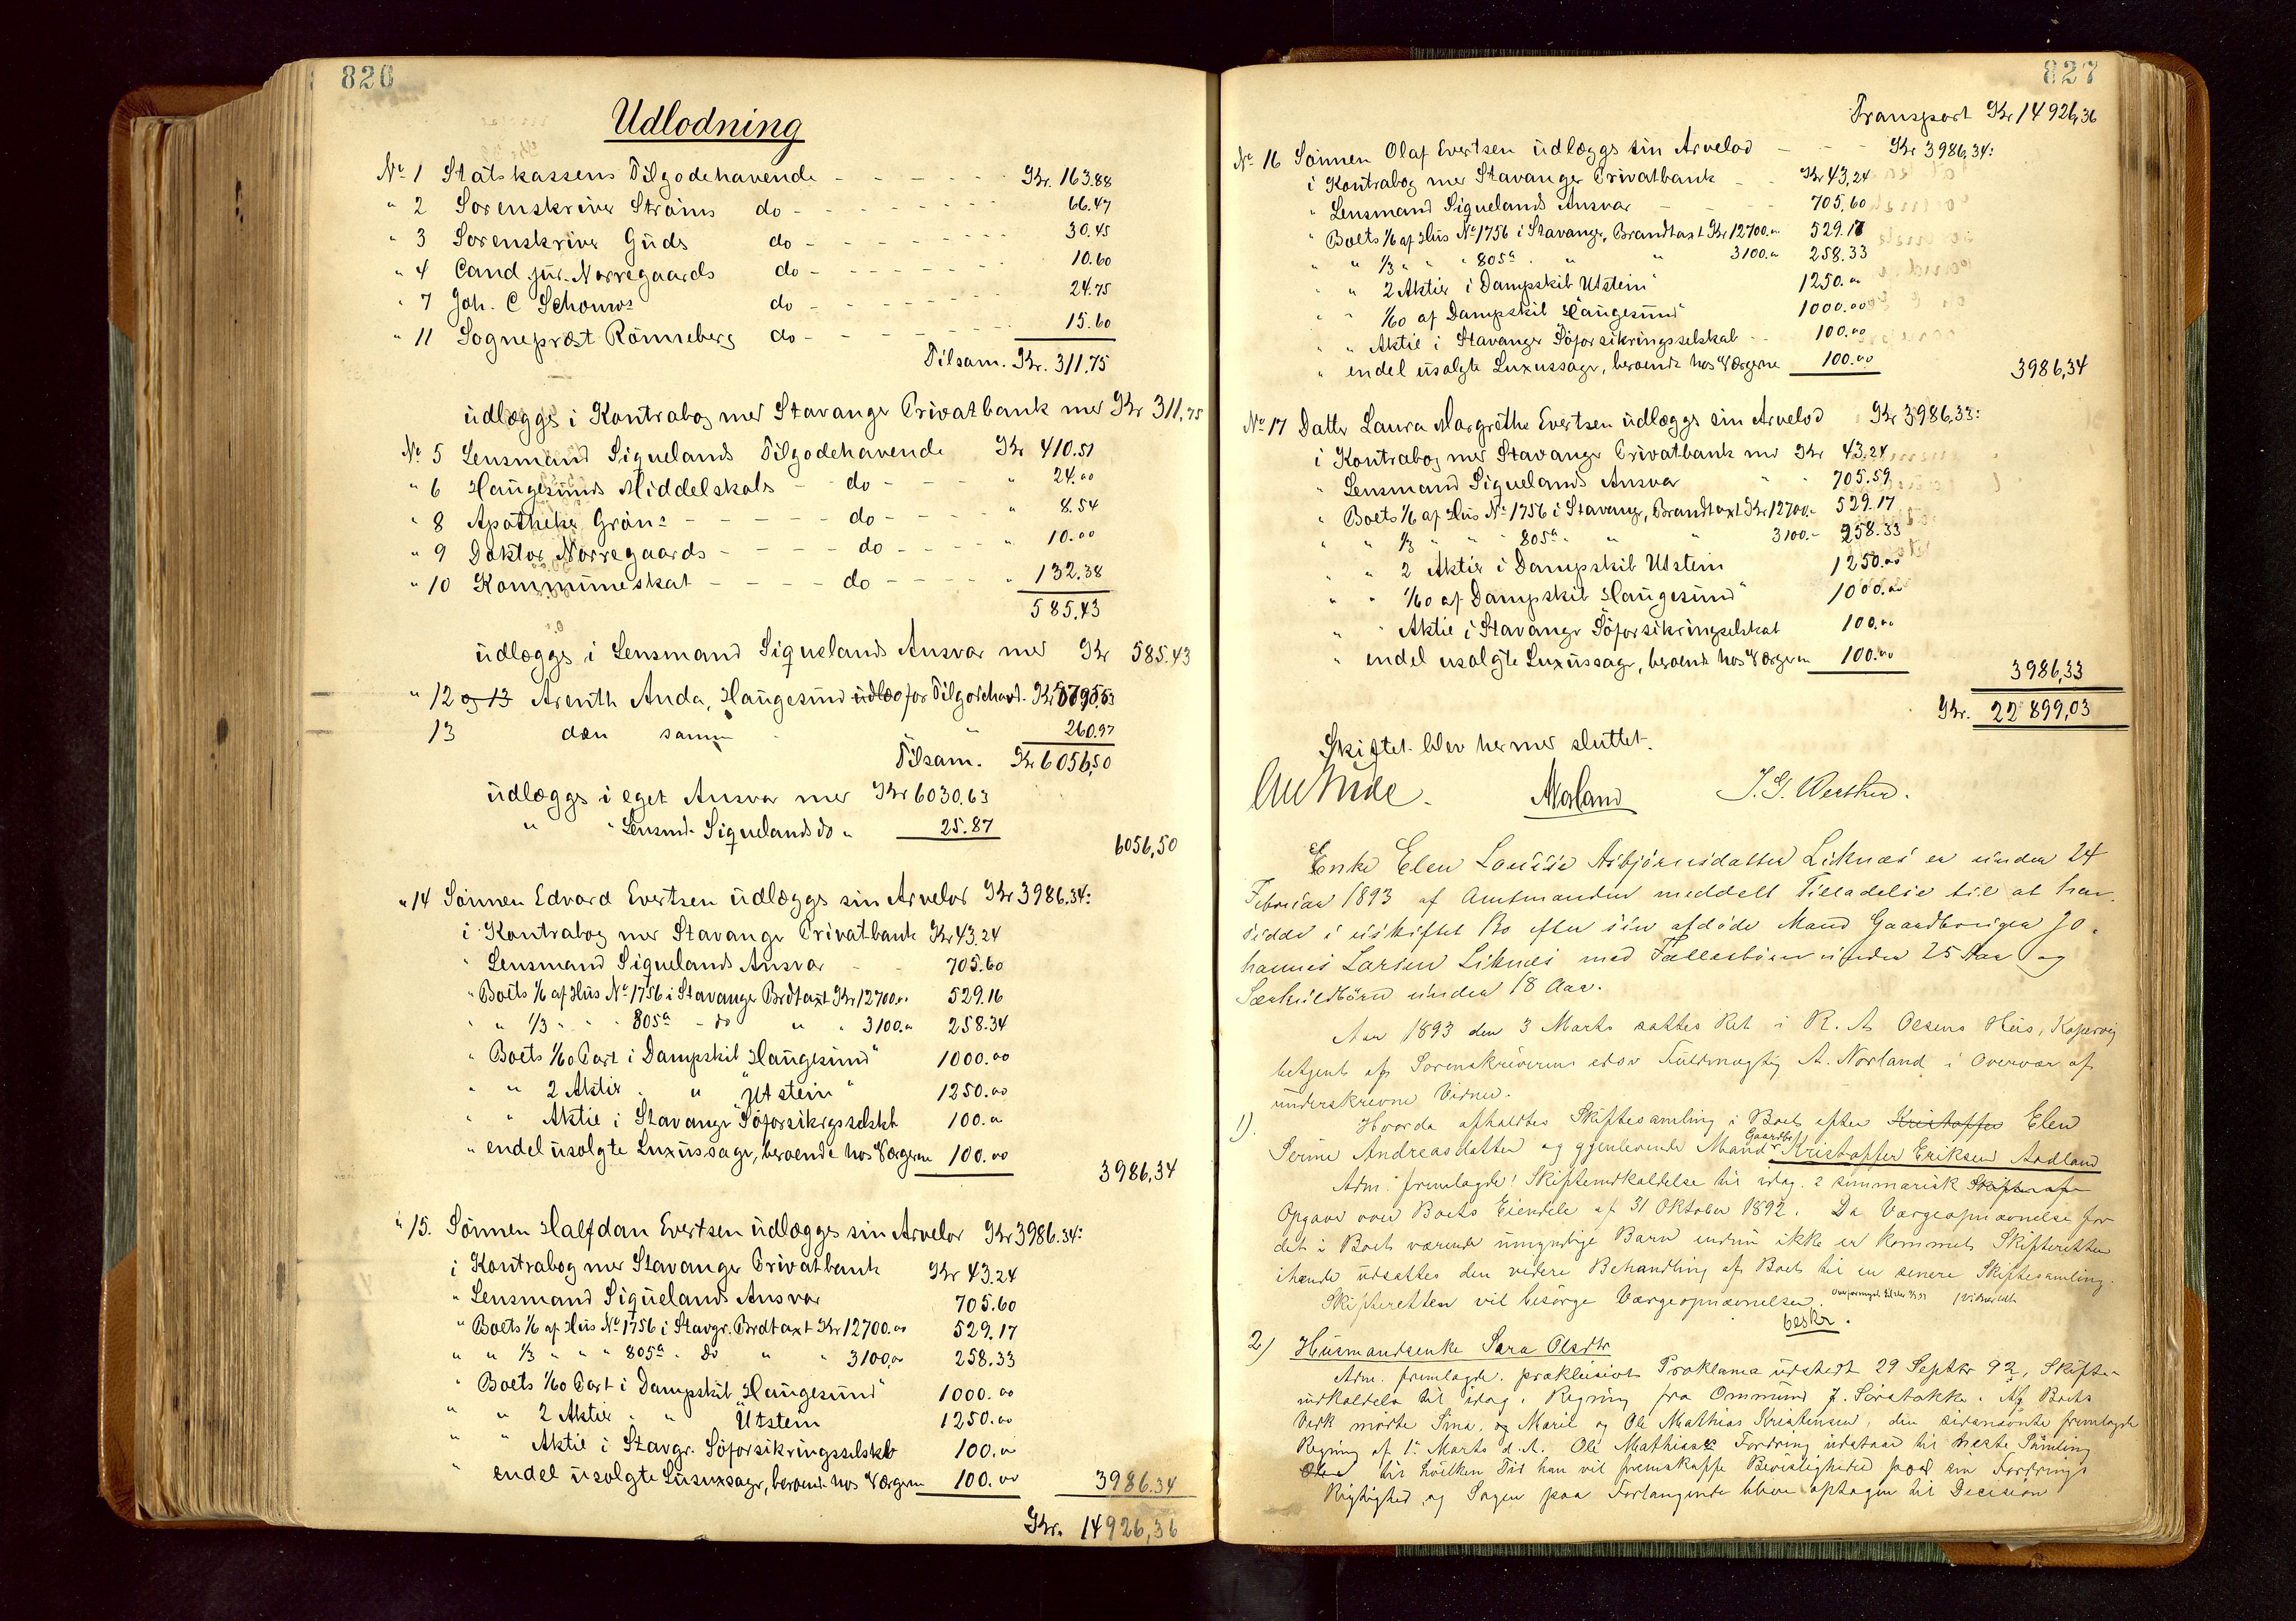 826
Udlodning
No 1 Statskassens Tilgodehavende - - - - - Kr. 163.88
" 2 Sorenskriver Strøms do - - - - - 66.47
" 3 Sorenskriver Guds do - - - - - 30.45
" 4 Cand jur. Norregaards do - - - - - 10.60
" 7 Joh. C Schouws do - - - - - 24.75
" 11 Sogneprest Rönneberg do - - - - - 15.60
Tilsam. Kr. 311,75
udlægges i Kontrabog med Stavanger Privatbank med Kr 311,75
No 5 Lensmand Siquelands Tilgodehavende Kr 410.51
" 6 Haugesunds Middelskols - do - - - " 24.00
" 8 Apotheker Gröns - - - - do - - - " 8.54
" 9 Doktor Norregaards - - - - do - - - " 10.00
" 10 Kommuneskat - - - - do - - - " 132.38
585,43
udlægges i Lensmand Siquelands Ansvar med Kr 585.43
" 12 og 13 Arenth Anda, Haugesund udlæ for Tilgodehavd. Kr 5795,53
13 den samme " 260.97
Tilsam. Kr 6056,50
udlægges i eget Ansvar med Kr 6030.63
" " Lensmd. Siquelands do " 25.87
6056,50
" 14 Sönnen Edvard Evertsen udlægges sin Arvelod Kr 3986.34:
i Kontrabog med Stavanger Privatbank Kr 43.24
" Lensmand Siquelands Ansvar - - 705.60
" Boets 1/6 af Hus No 1756 i Stavanger Brdtaxt Kr 12700.00 529.16
" " 1/3 " " " 805a - do " " 3100.00 258.34
" Boets 1/60 Part i Dampskib "Haugesund" 1000.00
" " 2 Aktier " " "Utstein" 1250.00
" " Aktie i Stavanger Söforsikrgsselskb 100.00
" endel usolgte Luxussager, beroende hos Værgerne 100.00
3986,34
" 15. Sönnen Halfdan Evertsen udlægges sin Arvelod Kr 3986.34:
i Kontrabog med Stavanger Privatbank Kr 43.24
" Lensmand Siquelands Ansvar 705.60
" Boets 1/6 af Hus No 1756 i Stavgr. Brdtaxt Kr 12700.00 529.17
" " 1/3 " " " 805a " do " " 3100.00 258.33
" Boets 1/60 Part i Dampskib "Haugesund" 1000.00
" " 2 Aktier " " "Utstein 1250.00
" " Aktie i Stavgr. Söforsikringsselskb 100.00
" endel usolgte Lusuxsager, beroende hos Værgerne 100.00 3986.34
Kr. 14926,36
827
Transport Kr 14926,36
No 16 Sönnen Olaf Evertsen udlægges sin Arvelod - - - Kr 3986,34:
i Kontrabog med Stavanger Privatbank - - Kr 43,24
" Lensmand Siquelands Ansvar - - - 705,60
" Boets 1/6 af Hus No 1756 i Stavanger, Brandtaxt Kr 12700.00 529.17
" " 1/3 " " " 805a " " " 3100.00 258.33
" " 2 Aktier i Dampskib "Utstein" 1250.00
" " 1/60 af Dampskib "Haugesund" 1000.00
" " Aktie i Stavanger Söforsikringsselskab - - 100.00
" endel usolgte Luxussager, beroende hos Værgerne 100.00 3986,34
No 17 Datter Laura Margrethe Evertsen udlægges sin Arvelod Kr 3986,33:
i Kontrabog med Stavanger Privatbank med Kr 43,24
" Lensmand Siquelands Ansvar " " 705.59
" Boets 1/6 af Hus No 1756 i Stavanger, Brandtaxt Kr 12700.- 529.17
" " 1/3 " " " 805a " " " 3100.- 258.33
" " 2 Aktier i Dampskib Utstein 1250.00
" " 1/60 af Dampskib Haugesund" 1000.00
" " Aktie i Stavanger Söforsikringselskab 100.00
" endel usolgte Luxussager, beroende hos Værgerne 100.00
3986,33
Kr. 22899,03
Skiftet blev hermed sluttet.
Norland
Enke Elen Louise Asbjörnsdatter Liknes er under 24
Februar 1893 af Amtmanden meddelt Tilladelse til at hen-
sidde i uskiftet Bo efter sin afdöde Mand Gaardbruger Jo-
hannes Larsen Liknes med Fællesbörn under 25 Aar og
Særkuldbörn under 18 Aar.
Aar 1893 den 3 Marts sattes Ret i R. A. Olsens Hus, Kopervig
betjent af Sorenskriverens edsv Fuldmægtig A. Norland i Overvær af
underskrevne Vidner.
1). Hvorda afholdtes Skiftesamling i Boet efter Kristoffer Elen
Serine Andreasdatter og gjenlevende Mand Gaardbr Kristoffer Eriksen Aadland
Adm. fremlagde 1 Skifteindkaldelse til idag. 2 summarisk Skifte af
Opgave over Boets Eiendele af 31 Oktober 1892. Da Værgeopnævnelse for
det i Boet værende umyndige Barn endnu ikke er kommet Skifteretten
ihænde udsattes den videre Behandling af Boet til en senere Skiftesamling.
Skifteretten vil besörge Værgeopnævnelsen.
beskr.
2) Husmandsenke Sara Olsdtr
Adm. fremlagde præklusivt Proklama udstedt 29 Septbr 92, Skifte-
indkaldelse til idag. Regning fra Ommund J. Sörstokke. Af Boets
Vedk mödte Sina, og Marie og Ole Mathias Kristensen, den sidstnævnte fremlagde
Regning af 1. Marts d. A. Ole Mathias's Fordring udstaar til næste Samling
til hvilken Tid han vil fremskaffe Bevisligheder paa sin Fordrings
Rigtighed og Sagen paa Forlangende blive optagen til Decision